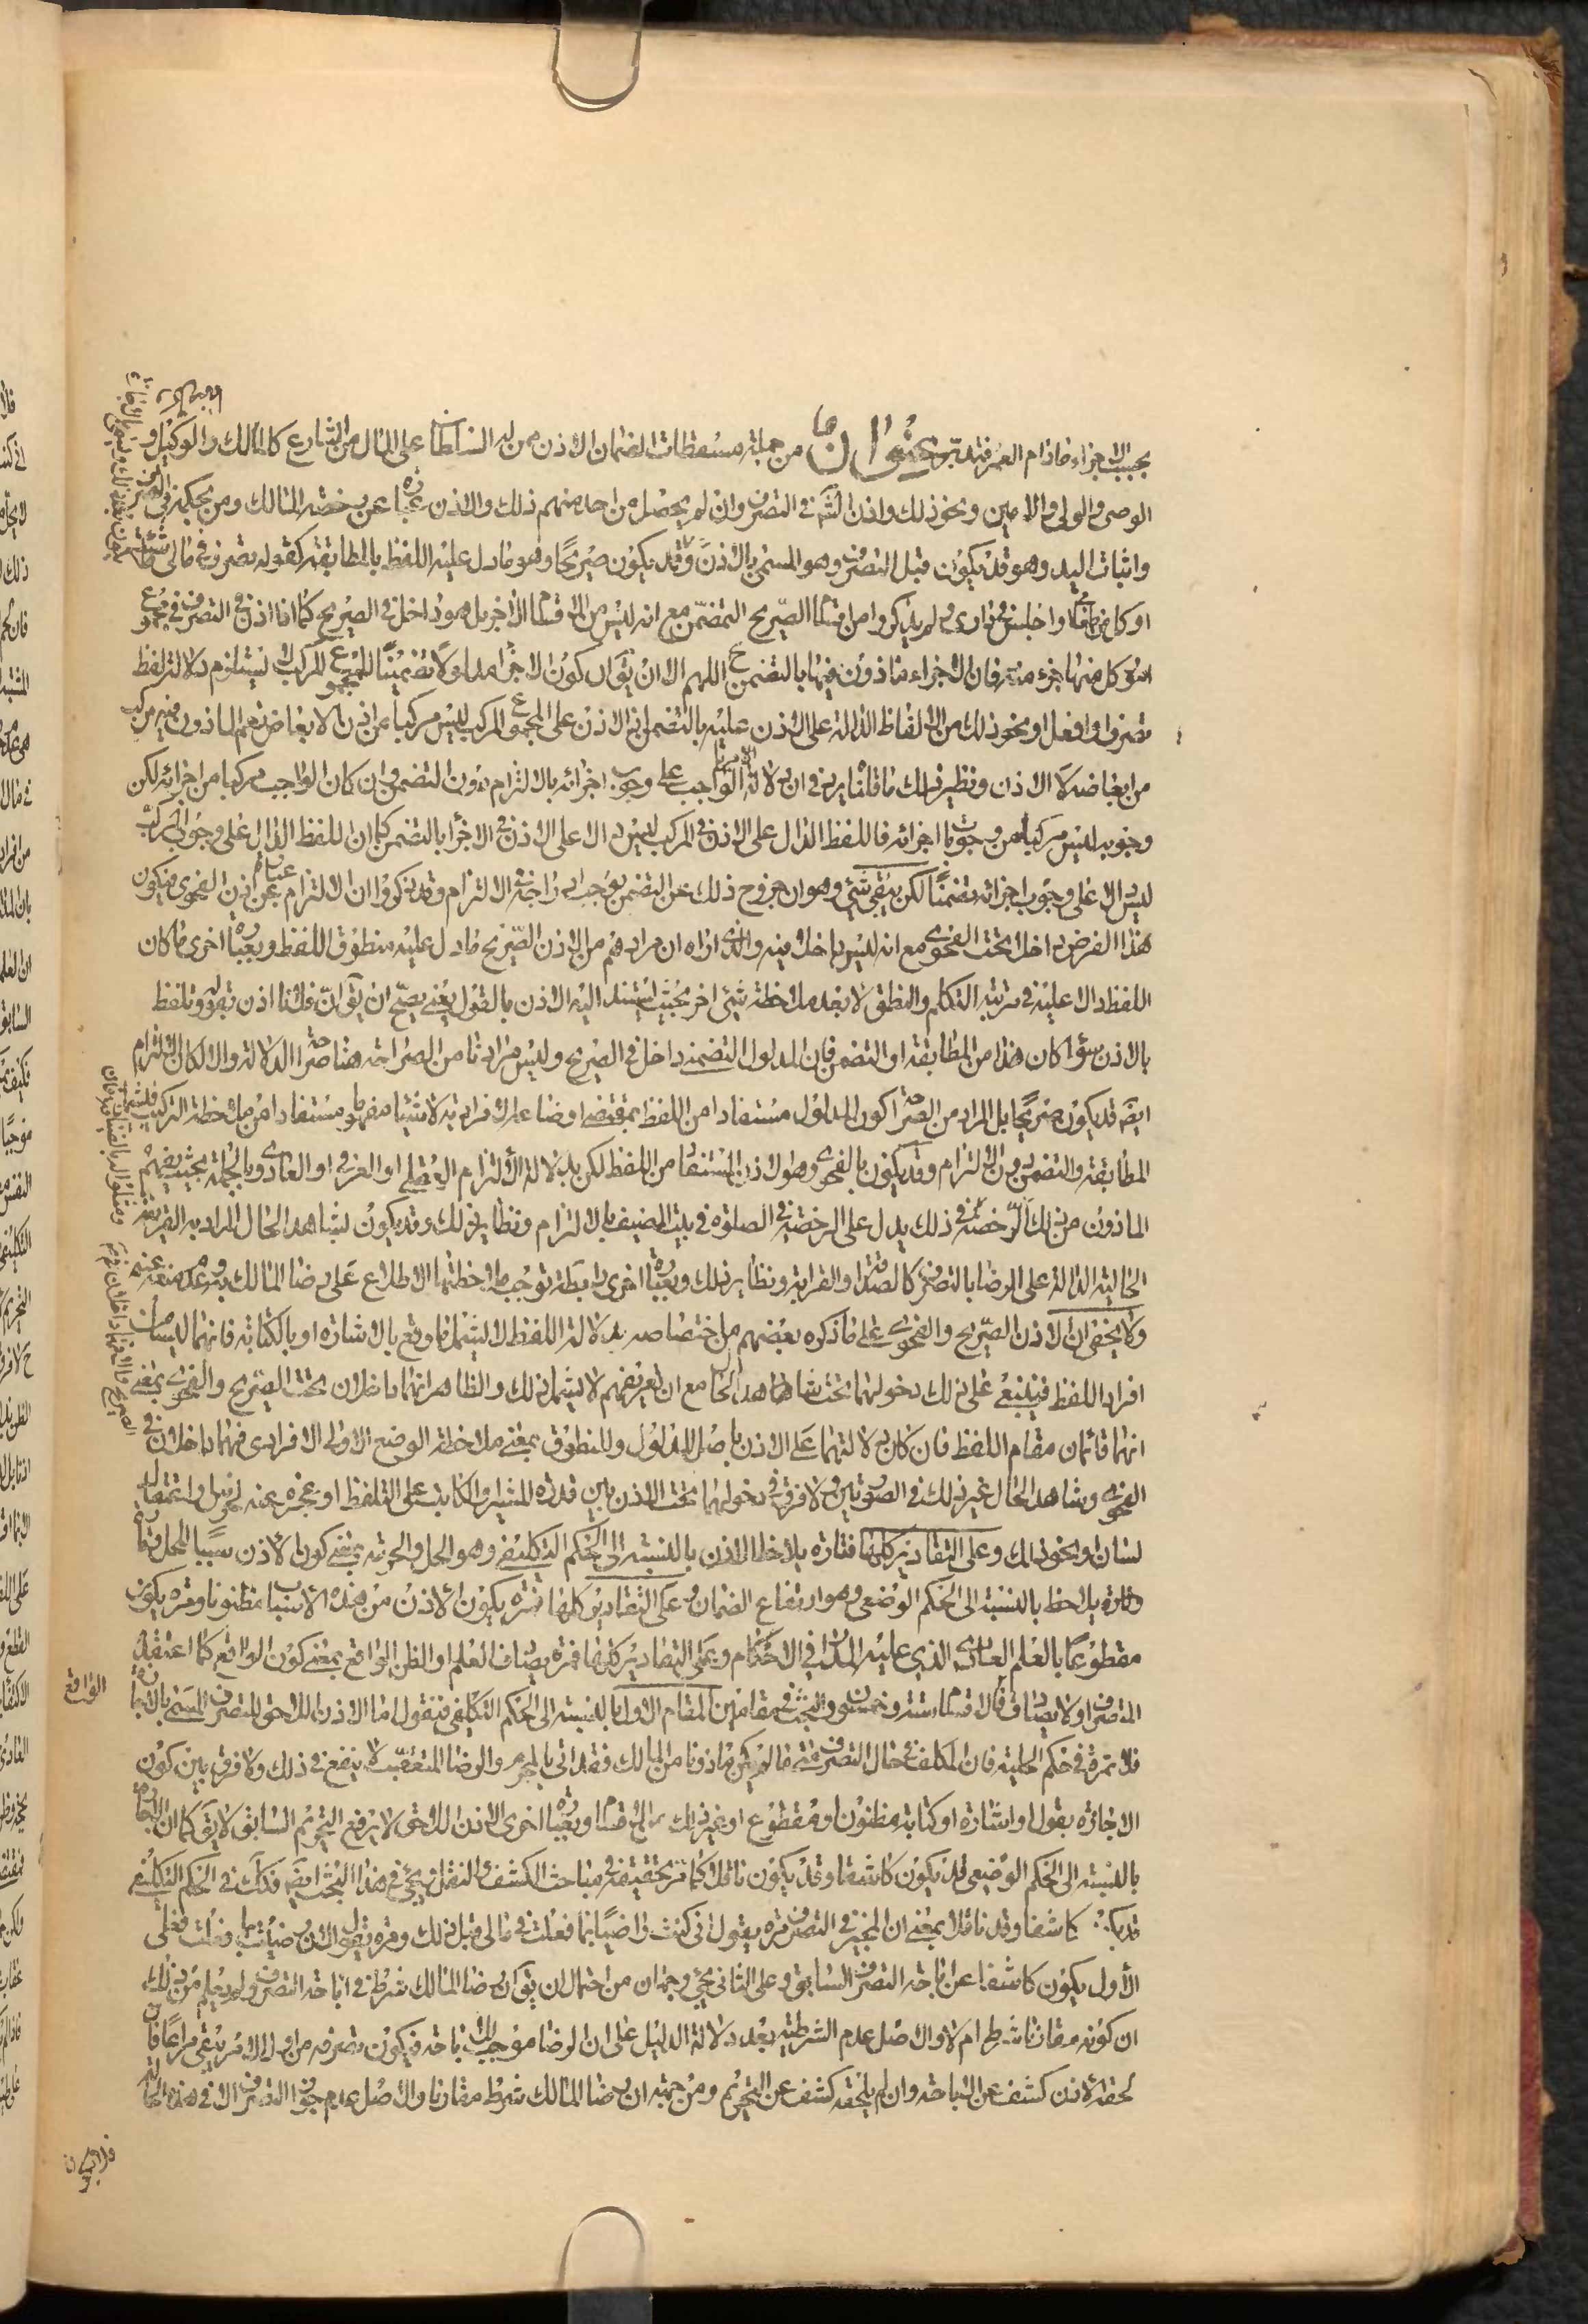 بحسب الاجزاء فاذا تم العرفته تدبر عنوان من جملة مسقطات الضمان الاذن ممن له السلطان على المال من الشارع كالمالك والوكيل و
الوصي والولي والامين ونحو ذلك واذن الله في التصرف وان لم يحصل من احد منهم ذلك والاذن عبارة عن رخصة المالك ومن بحكمه في التصرف
واثبات اليد وهو قد يكون قبل التصرف وهو المسمى بالاذن وقد يكون صريحا وهو ما دل عليه اللفظ بالمطابقة كقوله تصرف في مالي
او كل طعامي او اجلس في داري ولم يذكروا من اقسام الصريح التضمن مع انه ليس من الاقسام الاخر بل هو داخل في الصريح كما اذا اذن في التصرف في مجموع
امور كل منها جزء منه فان الاجزاء ماذون فيها بالتضمن اللهم الا ان يقال كون الاجزاء مدلولا تضمنيا للمجموع المركب لا يستلزم دلالة لفظ
تصرف او افعل او نحو ذلك من الالفاظ الدالة على الاذن عليه بالتضمن اذ الاذن على المجموع المركب ليس مركبا من اذن الابعاض نعم الماذون فيه مركب
من ابعاضه لا الاذن ونظير ذلك ما قلنا به في ان دلالة الامر بالواجب على وجوب اجزائه بالالتزام دون التضمن وان كان الواجب مركبا من اجزائه لكن
وجوبه ليس مركبا من وجوبات اجزائه فاللفظ الدال على الاذن في المركب ليس دالا على الاذن في الاجزاء بالتضمن كما ان اللفظ الدال على وجوب المركب
ليس دالا على وجوب اجزائه تضمنا لكن يبقى شيء وهو ان خروج ذلك عن التضمن يوجب اندراجه في الالتزام وقد ذكروا ان الالتزام عبارة عن اذن الفحوى فيكون
هذا الفرض داخلا تحت الفحوى مع انه ليس بداخل فيه والذي اراه ان مرادهم من الاذن الصريح ما دل عليه منطوق اللفظ وبعبارة اخرى ما كان
اللفظ دالا عليه في مرتبة التكلم والنطق لا بعد ملاحظة شيء اخر بحيث يستند اليه الاذن بالقول يعني يصح ان يقال ان فلانا اذن بقوله وتلفظ
بالاذن سواء كان هذا من المطابقة او التضمن فان المدلول التضمني داخل في الصريح وليس مرادنا من الصراحة هنا صراحة الدلالة والا لكان الالتزام
ايضا قد يكون صريحا بل المراد من الصراحة كون المدلول مستفادا من اللفظ بمقتضى اوضاعه الافرادية لا شيئا مفهوما مستفادا من ملاحظة التركيب فيشمل
المطابقة والتضمن دون الالتزام وقد يكون بالفحوى وهو الاذن المستفاد من اللفظ لكن بدلالة الالتزام العقلي او العرفي او العادي وبالجملة بحيث يفهم
الماذون من ذلك الرخصة في ذلك يدل على الرخصة في الصلوة في بيت المضيف بالالتزام ونظاير ذلك وقد يكون لشاهد الحال المراد به القرينة
الحالية الدالة على الرضا بالتصرف كالصداقة او القرابة ونظاير ذلك وبعبارة اخرى رابطة توجب ملاحظتها الاطلاع على رضا المالك به وعدم منعه عنه
ولا يخفى ان الاذن الصريح والفحوى على ما ذكره بعضهم من اختصاصه بدلالة اللفظ لا يشمل ما وقع بالاشارة او بالكتابة فانهما ليسا من
افراد اللفظ فينبغي على ذلك دخولهما تحت شاهد الحال مع ان تعريفهم لا يشمل ذلك والظاهر انهما داخلان تحت الصريح والفحوى بمعنى
انهما قائمان مقام اللفظ فان كان دلالتهما على الاذن باصل المدلول والمنطوق بمعنى ملاحظة الوضع الاولى الافرادى فهما داخلان في
الفحوى وشاهد الحال غير ذلك في الصورتين ولا فرق في دخولهما تحت الاذن بين قدرة المشير والكاتب على التلفظ او عجزه عنه لخرس او اعتقال
لسان او نحو ذلك وعلى التقادير كلها فتارة يلاحظ الاذن بالنسبة الى الحكم التكليفي وهو الحل والحرمة بمعنى كون الاذن سببا للحل وتارة
وتارة يلاحظ بالنسبة الى الحكم الوضعي وهو ارتفاع الضمان وعلى التقادير كلها فمرة يكون الاذن من هذه الاسباب مظنونا ومرة يكون
مقطوعا بالعلم العادي الذي عليه المدار في الاحكام وعلى التقادير كلها فمرة يصادف العلم او الظن الواقع بمعنى كون الواقع كما اعتقده
المتصرف او لا يصادف فالاقسام ستة وخمسون والبحث في مقامين المقام الاول بالنسبة الى الحكم التكليفي فنقول اما الاذن اللاحق للتصرف المسمى بالاجازة
فلا ثمرة في حكم الحلية فان المكلف في حال التصرف متى ما لم يكن ماذونا من المالك فقد اتى بالمحرم والرضا المتعقب لا ينفع في ذلك ولا فرق بين كون
الاجازة بقول او اشارة او كتابة مظنون او مقطوع او غير ذلك من الاقسام وبعبارة اخرى الاذن اللاحق لا يرفع التحريم السابق لا يقال كما ان الاجازة
بالنسبة الى الحكم الوضعي قد يكون كاشفا وقد يكون ناقلا كما مر تحقيقه في مباحث الكشف والنقل ويجيء في هذا البحث ايضا فكذلك في الحكم التكليفي
قد يكون كاشفا وقد ناقلا بمعنى ان المجيز في التصرف مرة يقول اني كنت راضيا بما فعلت في مالي قبل ذلك ومرة يقول الان رضيت بما فعلت فعلى
الأول يكون كاشفا عن اباحة التصرف السابق وعلى الثاني يجيء وجهان من احتمال ان يقال رضا المالك شرط في اباحة التصرف ولم يعلم من ذلك
ان كونه مقارنا شرط ام لا والاصل عدم الشرطية بعد دلالة الدليل على ان الرضا موجب للاباحة فيكون تصرفه من اول الامر يبقى مراعا فان
لحقه الاذن كشف عن الاباحة وان لم يلحقه كشف عن التحريم ومن جهة ان رضا المالك شرط مقارنا والاصل عدم جواز التصرف الا في هذه الحالة